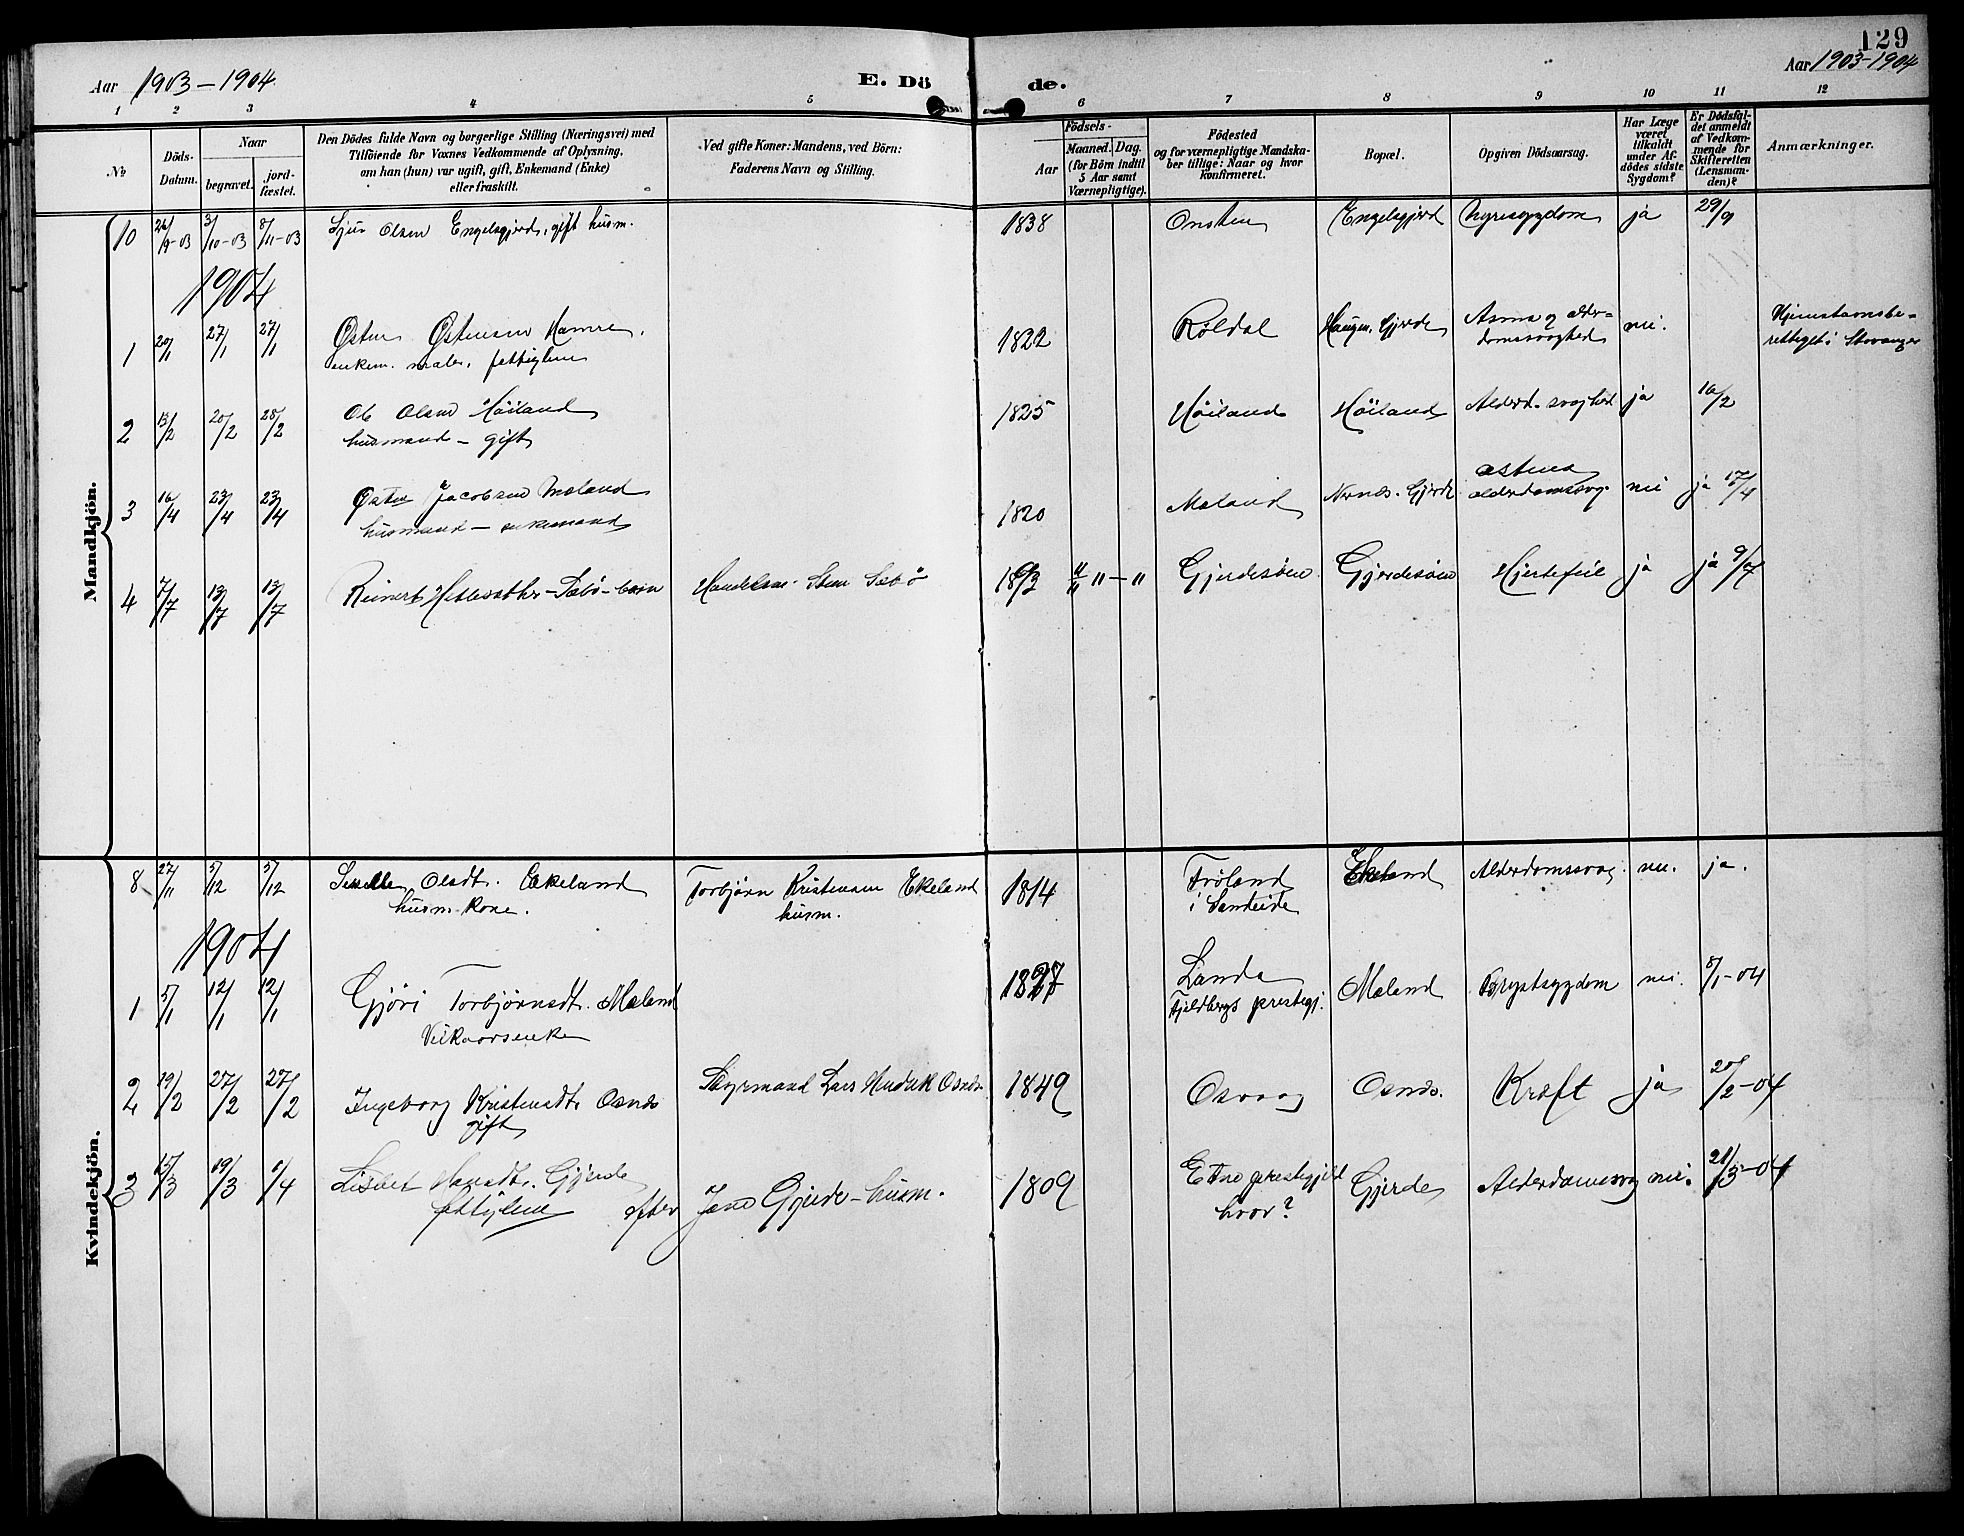 129
Aar 1903-1904
E. Dö de.
Aar 1903-1904
1 2 3 4 5 6 7 8 9 10 11 12
No
Döds-Datum.
Naar
begravet.
jord-fæstet.
Den Dödes fulde Navn og borgerlige Stilling (Næringsvei) med
Tilföiende for Voxnes Vedkommende af Oplysning,
om han (hun) var ugift, gift, Enkemand (Enke)
eller fraskilt.
Ved gifte Koner: Mandens, ved Börn:
Faderens Navn og Stilling.
Födsels-
Aar
Maaned. Dag.
(for Börn indtil
5 Aar samt
Værnepligtige).
Födested
og for værnepligtige Mandska-
ber tillige: Naar og hvor
konfirmeret.
Bopæl.
Opgiven Dödsaarsag.
Har Læge
været
tilkaldt
under Af-
dödes sidste
Sygdom?
Er Dödsfal-
det anmeldt
af Vedkom-
mende for
Skifteretten
(Lensman-
den)?
Anmærkninger.
Mandkjön.
10 26/9-03 3/10-03 8/11-03 Sjur Olsen Engelsgjerd, gift husm. 1838 Onsten Engelsgjerd Nyresygdom ja 29/9
1904
1 20/1 27/1 27/1 Østen Østensen Hamre, 1822 Røldal Haugen, Gjerde Asma og alder- nei. Hjemstavnsbe-
enkem. maler, fattiglem domssvaghed rettiget i Stavanger
2 13/2 20/2 28/2 Ole Olsen Høiland 1825 Høiland Høiland Alderd.svaghed ja 16/2
husmand - gift
3 16/4 23/4 23/4 Østen Jacobsen Mæland 1820 Mæland Nernæs, Gjerde astma nei ja 17/4
husmand - enkemand alderdomssvag.
4 7/7 13/7 13/7 Reinert Hetlesæther Sæbø - barn Handelsm. Sten Sæbø 1903 4/11 " - " Gjerdesøen Gjerdesøen Hjertefeil ja ja 9/7
Kvindekjön.
8 27/11 5/12 5/12 Olsdt. Ekeland Torbjørn Kristensen Ekeland 1814 Frøland Ekeland Alderdomssvag nei. ja.
husm.kone. husm. i Sandeide
1904
1 5/1 12/1 12/1 Gjöri Torbjørnsdt. Mæland 1827 Landa Mæland Brystsygdom nei. 8/1-04
Vilkaarsenke Fjeldbergs prestegj.
2 19/2 27/2 27/2 Ingeborg Kristensdt. Osnes Lars Osnes 1849 Osvaag Osnes. Kræft ja 20/2-04
gift
3 15/3 19/3 1/4 Lisbet Hansdt. Gjerde 1809 Etne prestegjeld Gjerde Alderdomssvag nei. 21/3-04
fattiglem efter Jens Gjerde - husm. hvor?